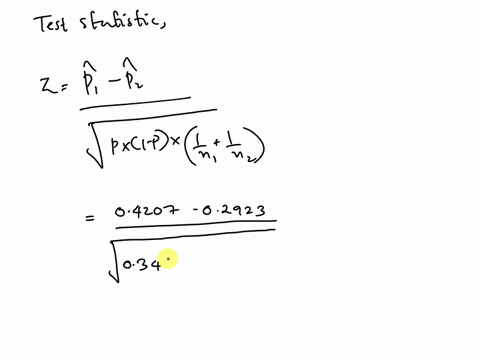 Test statistic,
Z = p̂₁ - p̂₂
√p×(1-p)×(1/n₁ + 1/n₂)
= 0.4207 - 0.2923
√0.34